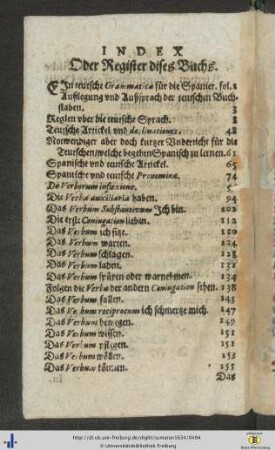 INDEX
Oder Register dises Buchs.
Ein teutsche Grammatica für die Spanier. fol. 1
Außlegung vnd Außsprach der teutschen Buch-
staben. 3
Reglen vber die teutsche Sprach. 8
Teutsche Artickel vnd declinationes. 48
Notwendiger aber doch kurtzer Vnderricht für die
Teutschen/welche begeren Spanisch zu lernen. 61
Spanische vnd teutsche Artickel. 65
Spanische vnd teutsche Pronomina. 74
De Verborum inflexione.
Die Verba auxiliaria haben. 94
Das Verbum Substantivum Ich bin. 102
Die erste Coniugation lieben.
Das Verbum ich sitze. 120
Das Verbum warten. 124
Das Verbum schlagen. 128
Das Verbum laden. 131
Das Verbum spüren oder warnehmen. 134
Folgen die Verba der andern Coniugation sehen. 138
Das Verbum fallen. 145
Das Verbum reciprocum ich schmertze mich. 147
Das Verbum bewegen. 149
Das Verbum wissen. 151
Das Verbum pflegen. 151
Das Verbum wöllen. 155
Das Verbum können. 155
Das
http://dl.ub.uni-freiburg.de/diglit/sumaran1634/0494
© Universitätsbibliothek Freiburg